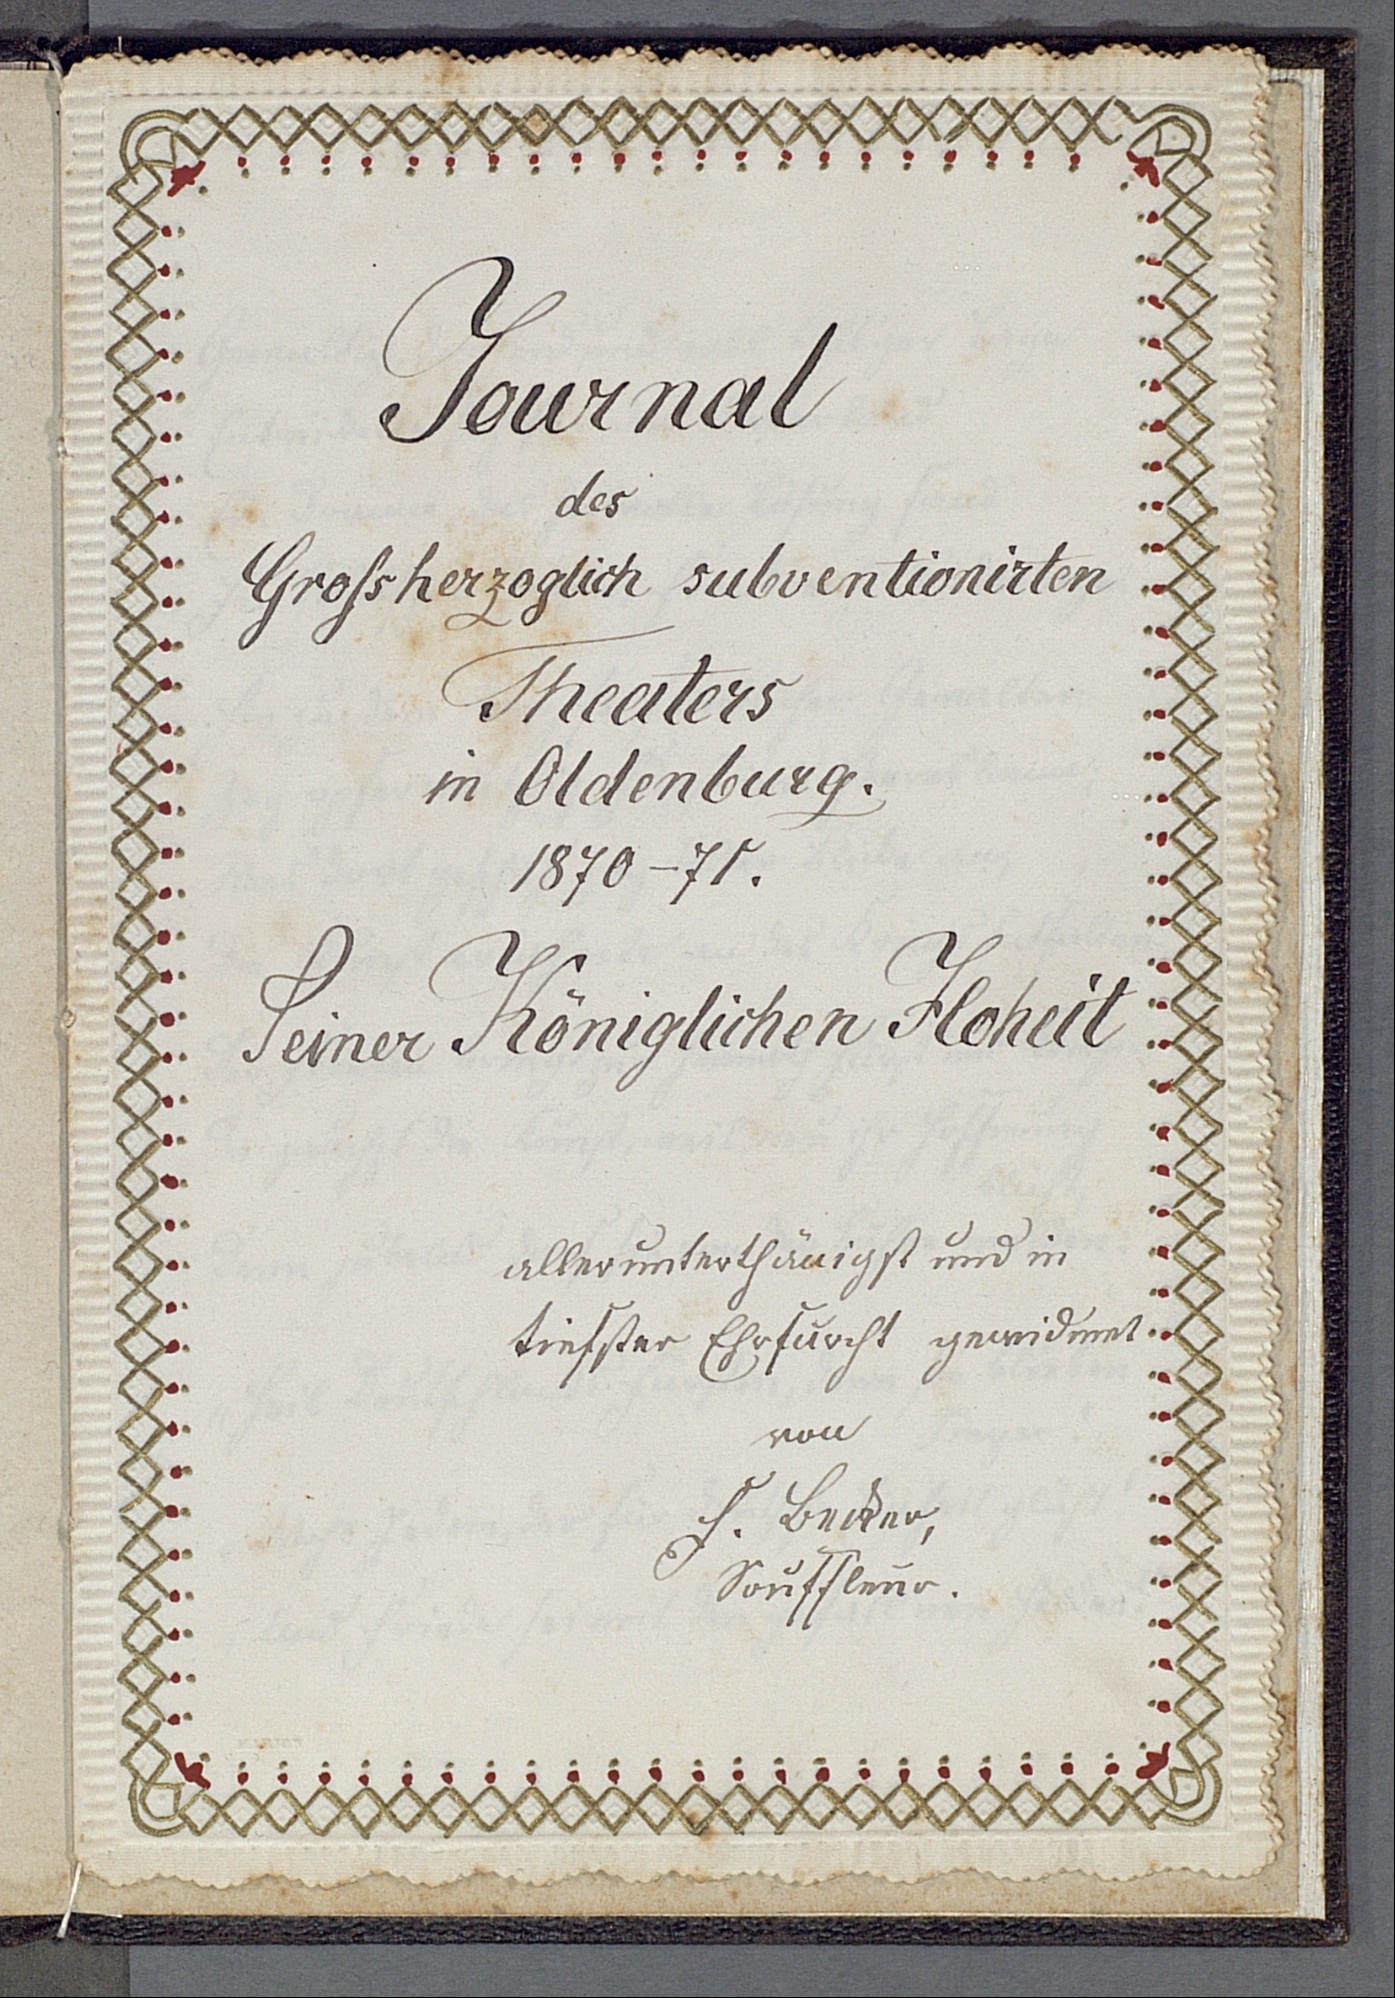 Journal
des
Großherzoglich subventionirten
Theaters
in Oldenburg.
1870–71.
Seiner Königlichen Hoheit
allerunterthänigst und in
tiefster Ehrfurcht gewidmet
von
H. Becker,
Souffleur.